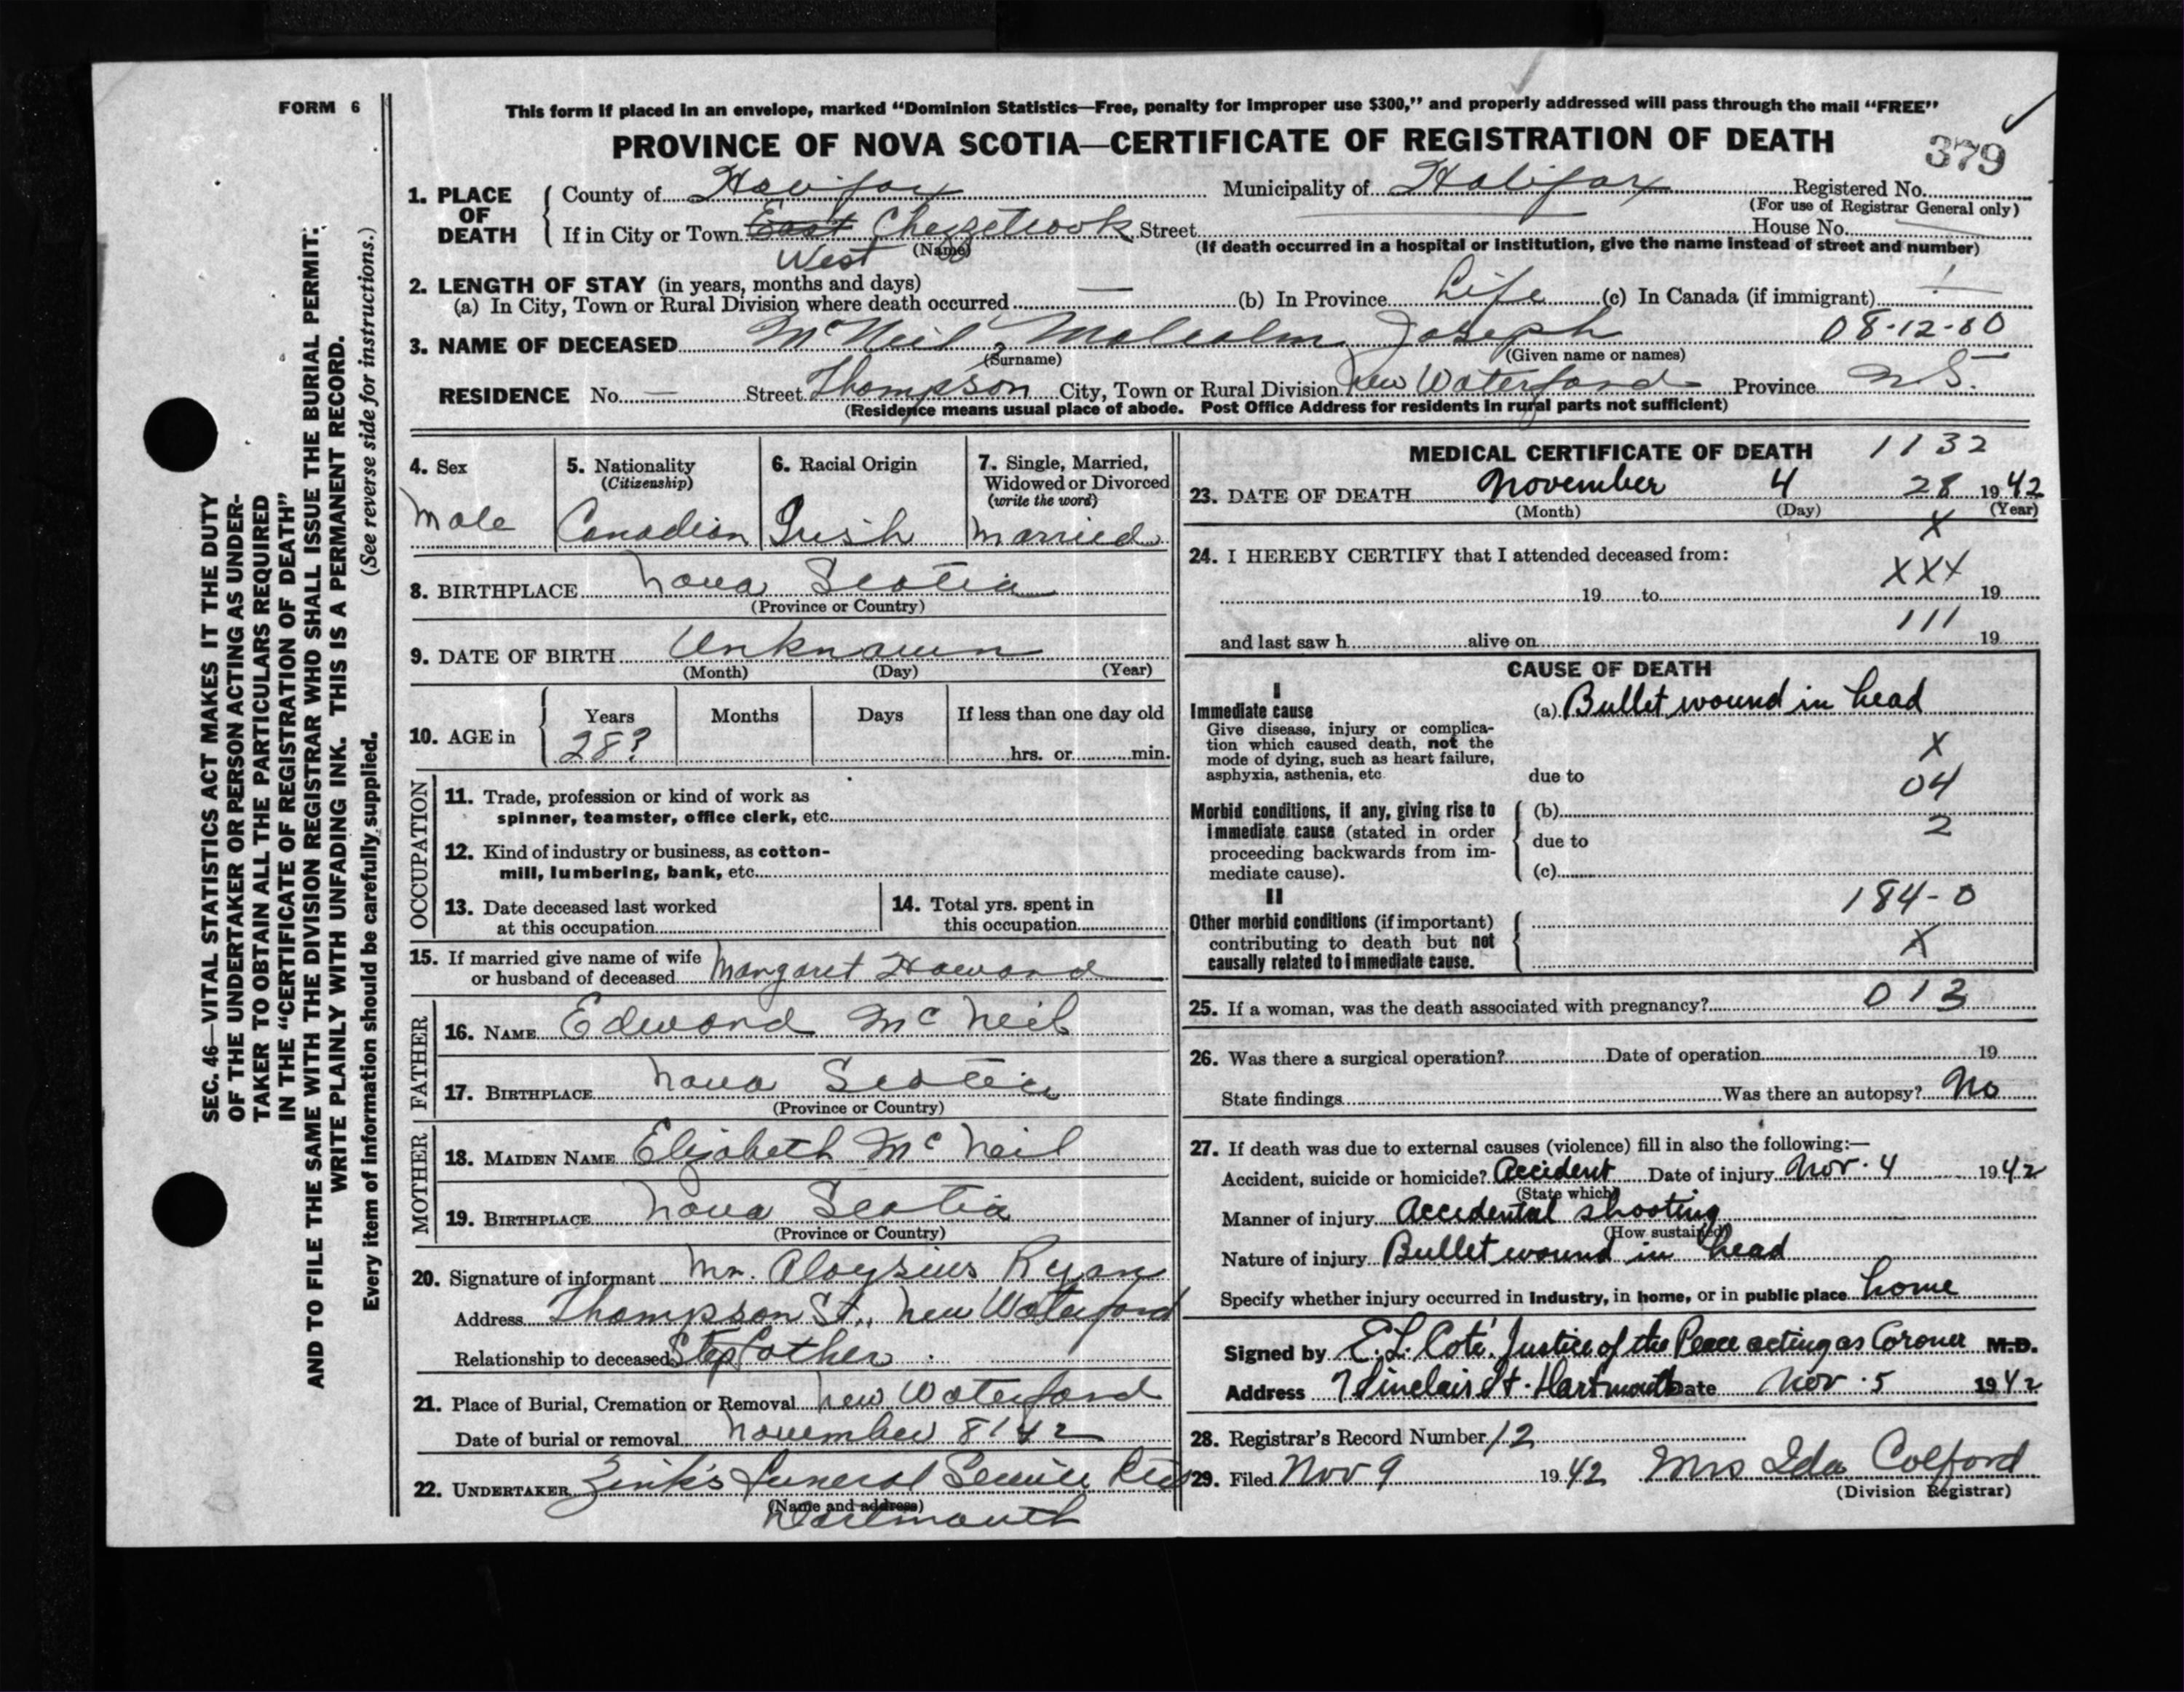 FORM 6
This form if placed in an envelope, marked “Dominion Statistics—Free, penalty for improper use $300,” and properly addressed will pass through the mail “FREE”
PROVINCE OF NOVA SCOTIA—CERTIFICATE OF REGISTRATION OF DEATH
379
1. PLACE OF DEATH County of Halifax Municipality of Halifax Registered No.
(For use of Registrar General only)
If in City or Town East Chezzetcook Street House No.
West (Name) (If death occurred in a hospital or institution, give the name instead of street and number)
2. LENGTH OF STAY (in years, months and days)
(a) In City, Town or Rural Division where death occurred — (b) In Province Life (c) In Canada (if immigrant)
3. NAME OF DECEASED McNeil, Malcolm Joseph 08-12-60
(Surname) (Given name or names)
RESIDENCE No. — Street Thompson City, Town or Rural Division New Waterford Province N.S.
(Residence means usual place of abode. Post Office Address for residents in rural parts not sufficient)
4. Sex
Male
5. Nationality
(Citizenship)
Canadian
6. Racial Origin
Irish
7. Single, Married,
Widowed or Divorced
(write the word)
Married
8. BIRTHPLACE Nova Scotia
(Province or Country)
9. DATE OF BIRTH Unknown
(Month) (Day) (Year)
10. AGE in Years Months Days If less than one day old
28? hrs. or min.
OCCUPATION
11. Trade, profession or kind of work as
spinner, teamster, office clerk, etc.
12. Kind of industry or business, as cotton-
mill, lumbering, bank, etc.
13. Date deceased last worked
at this occupation
14. Total yrs. spent in
this occupation
15. If married give name of wife
or husband of deceased Margaret Howard
FATHER
16. NAME Edward McNeil
17. BIRTHPLACE Nova Scotia
(Province or Country)
MOTHER
18. MAIDEN NAME Elizabeth McNeil
19. BIRTHPLACE Nova Scotia
(Province or Country)
20. Signature of informant Mr. Aloysius Ryan
Address Thompson St., New Waterford
Relationship to deceased Stepfather
21. Place of Burial, Cremation or Removal New Waterford
Date of burial or removal November 8/42
22. UNDERTAKER Zink's Funeral Service
(Name and address)
Dartmouth
MEDICAL CERTIFICATE OF DEATH 1132
23. DATE OF DEATH November 4 28 1942
(Month) (Day) (Year)
X
24. I HEREBY CERTIFY that I attended deceased from:
XXX
19 to 19
111
and last saw h alive on 19
CAUSE OF DEATH
I
Immediate cause (a) Bullet wound in head
Give disease, injury or complica-
tion which caused death, not the
mode of dying, such as heart failure,
asphyxia, asthenia, etc. due to
X
04
Morbid conditions, if any, giving rise to (b)
immediate cause (stated in order due to
proceeding backwards from im-
mediate cause). (c)
2
II
184-0
Other morbid conditions (if important)
contributing to death but not
causally related to immediate cause.
X
25. If a woman, was the death associated with pregnancy? 013
26. Was there a surgical operation? Date of operation 19
State findings Was there an autopsy? No
27. If death was due to external causes (violence) fill in also the following:—
Accident, suicide or homicide? Accident Date of injury Nov. 4 1942
(State which)
Manner of injury Accidental shooting
(How sustained)
Nature of injury Bullet wound in head
Specify whether injury occurred in industry, in home, or in public place home
Signed by E. L. Coté. Justice of the Peace acting as Coroner M.D.
Address 7 Sinclair St. Dartmouth Date Nov. 5 1942
28. Registrar's Record Number 12
29. Filed Nov 9 1942 Mrs Ida Colford
(Division Registrar)
SEC. 46—VITAL STATISTICS ACT MAKES IT THE DUTY
OF THE UNDERTAKER OR PERSON ACTING AS UNDER-
TAKER TO OBTAIN ALL THE PARTICULARS REQUIRED
IN THE “CERTIFICATE OF REGISTRATION OF DEATH”
AND TO FILE THE SAME WITH THE DIVISION REGISTRAR WHO SHALL ISSUE THE BURIAL PERMIT.
WRITE PLAINLY WITH UNFADING INK. THIS IS A PERMANENT RECORD.
Every item of information should be carefully supplied. (See reverse side for instructions.)